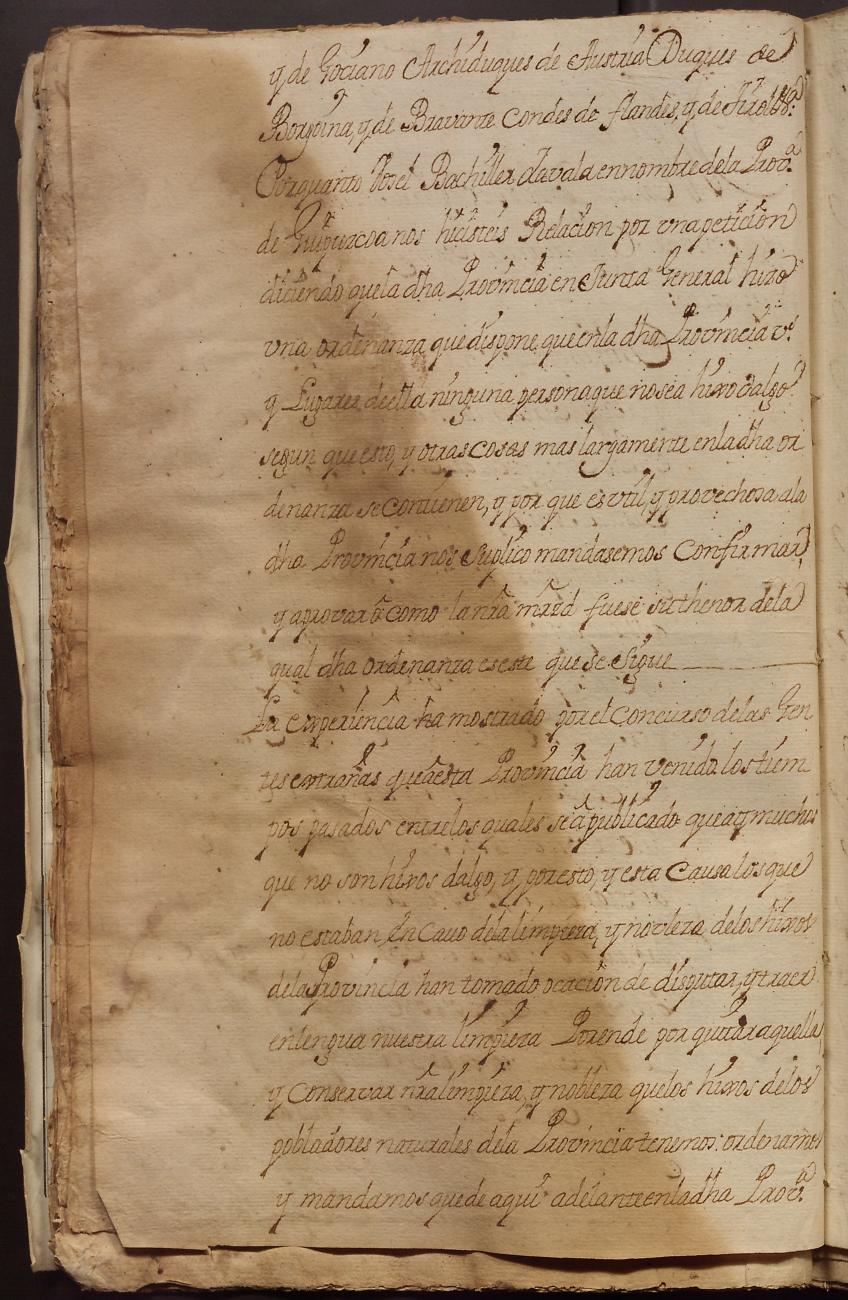 y de Gociano Archiduques de Austria Duques de
Borgoina, y de Bravante Condes de flandes, y de Tirol &ª:
Por quanto Vos el Bachiller Zavala en nombre de la Provª.
de Guipuzcoa nos hicisteis Relacion por vna peticion
diciendo que la dha Provincia en Junta General hizo
vna ordenanza que dispone que en la dha Provincia vªˢ
y Lugares de ella ninguna persona que no sea hixo dalgo
segun que esto, y otras cosas mas largamente en la dha or
denanza se contienen, y por que es vtil, y provechosa a la
dha Provincia nos Suplico mandasemos Confirmar
y aprovar o como la nra mrzd fuese su thenor de la
qual dha ordenanza es este que se Sigue
La experiencia ha mostrado por el Concurso de las Gen
tes extrañas que a esta Provincia han venido los tiem
pos pasados entre los quales se a publicado que ay muchos
que no son hixos dalgo, y por esto, y esta Causa los que
no estaban en cavo de la limpieza, y novleza de los hixos
de la Provincia han tomado ocacion de disputar, y traer
en lengua nuestra limpieza Porende por quitar aquella
y Conservar nra limpieza, y nobleza que los hixos de los
pobladores naturales de la Provincia tenemos: ordenamos
y mandamos que de aqui adelante en la dha Provª.